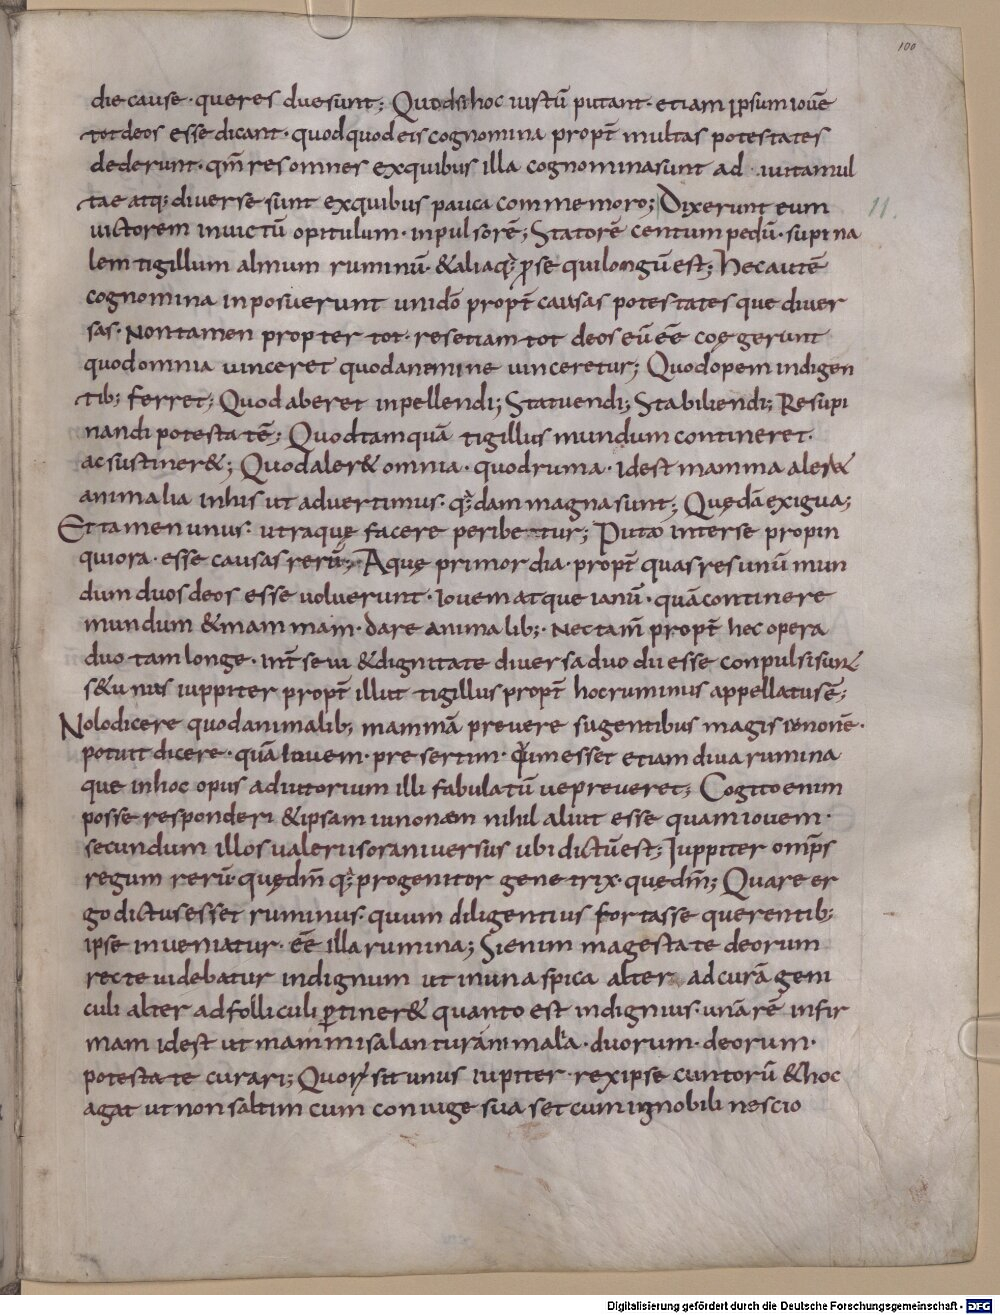 100
die cause · queres due sunt; Quodsi hoc iustū putant · etiam ipsum iouē
tot deos esse dicant · quod quod eis cognomina propt̄ multas potestates
dederunt · qm̄ res omnes exquibus illa cognomina sunt ad iuitamul
tae atq; diuerse sunt exquibus pauca commemoro; Dixerunt eum
11.
uictorem inuictū opitulum · inpulsorē; Statorē centumpedū · supina
lem tigillum almum ruminū · & alia q; ꝑse qui longū est; Hec autē
cognomina inposuerunt uni dō propt̄ causas potestates que diuer
sas · Non tamen propter tot · res etiam tot deos eū eē coegerunt
quod omnia uinceret quod anemine uinceretur; Quod opem indigen
tib; ferret; Quod aberet inpellendi; Statuendi; Stabiliendi; Resupi
nandi potestatē; Quod tam quā tigillus mundum contineret ·
ac sustiner&; Quod aler& omnia · quod ruma · idest mamma aler&
animalia inhis ut aduertimus · q; dam magna sunt; Quędā exigua;
Et tamen unus · utraque facere peribetur; Puto interse propin
quiora · esse causas rerū; Aque primordia · propt̄ quas res unū mun
dum duos deos esse uoluerunt · iouem atque ianū · quā continere
mundum & mammam · dare animalib; · Nec tam̄ propt̄ hec opera
duo tam longe · int̄ se ui & dignitate diuersa duo dii esse conpulsi sunt
s& unus iuppiter propt̄ illut tigillus propt̄ hoc ruminus appellatus ē;
Nolo dicere quod animalib; mammā prevere sugentibus magis iunonē ·
potuit dicere · quā iouem · presertim · cum esset etiam diua rumina
que inhoc opus adiutorium illi fabulatū ue preveret; Cogito enim
posse responderi & ipsam iunonem nihil aliut esse quam iouem ·
secundum illos ualerii sorani uersus ubi dictū est; Iuppiter omp̄s
regum rerū · quędm̄ q; progenitor genetrix · quedm̄; Quare er
go dictus esset ruminus · quum diligentius fortasse querentib;
ipse inueniatur · eē illa rumina; Si enim magestate deorum
recte uidebatur indignum ut inuna spica alter ad curā geni
culi alter ad folliculi ꝑtiner& quanto est indignius · unā rē infir
mam idest ut mammis alantur animalia · duorum · deorum ·
potestate curari; Quorum sit unus iupiter · rex ipse cuntorū & hoc
agat ut non saltim cum coniuge sua set cum ignobili nescio
Digitalisierung gefördert durch die Deutsche Forschungsgemeinschaft - DFG